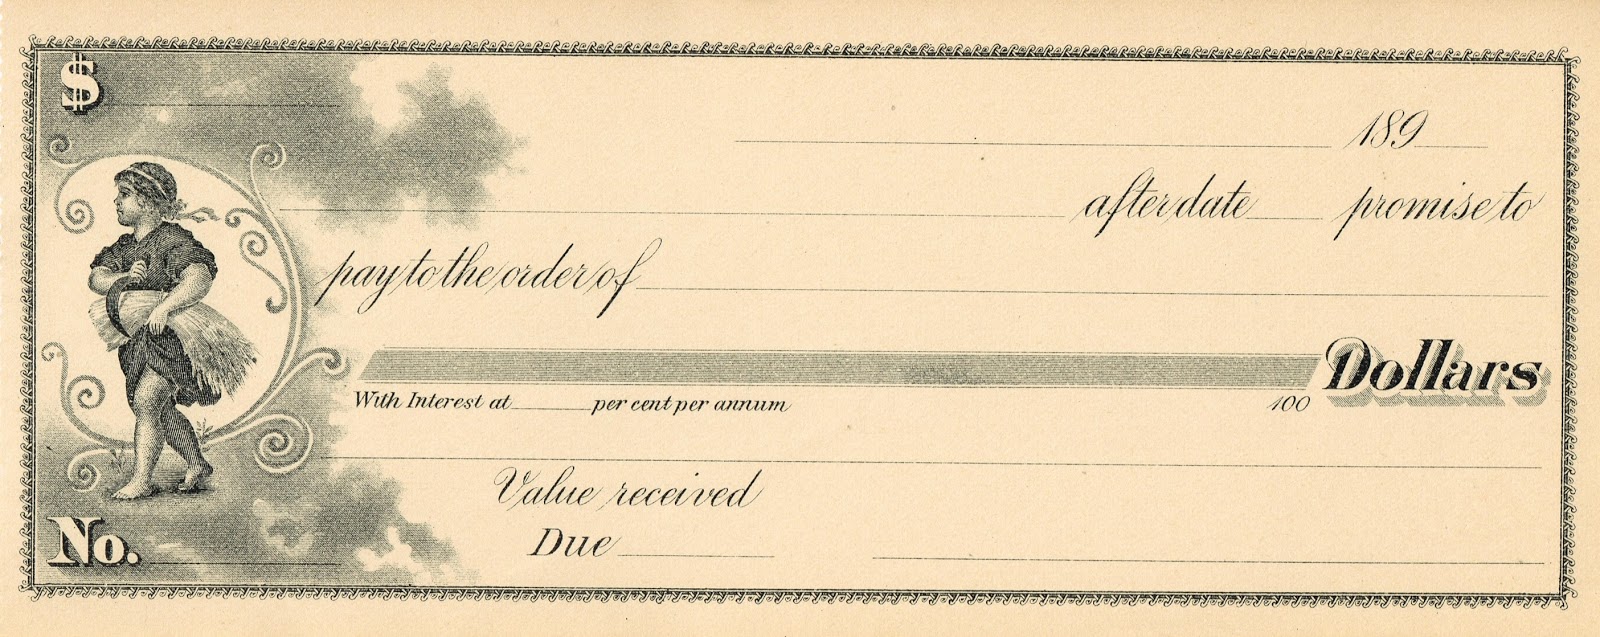 $
189
after date promise to
pay to the order of
Dollars
With Interest at per cent per annum 100
Value received
Due
No.